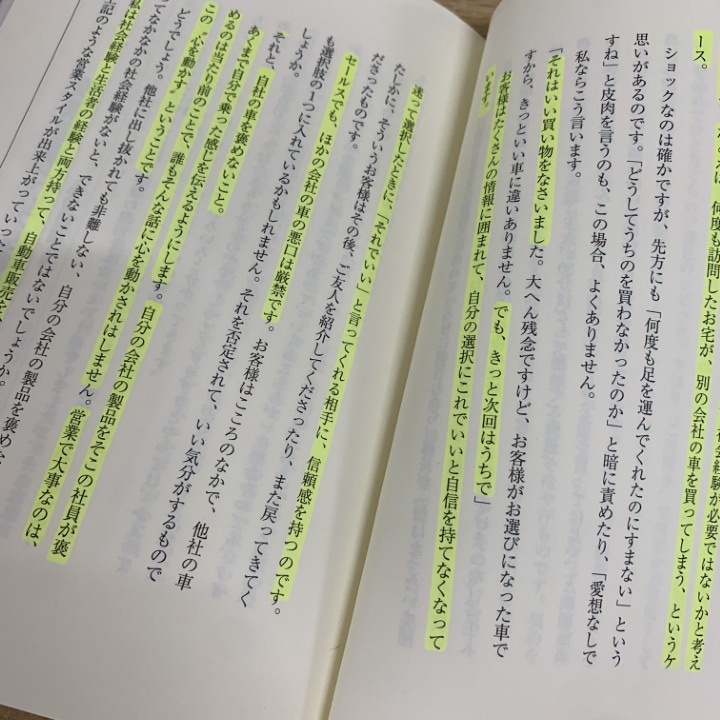 社会経験が必要ではないかと考え
は、何度も訪問したお宅が、別の会社の車を買ってしまう、というケ
ース。
ショックなのは確かですが、先方にも「何度も足を運んでくれたのにすまない」という
思いがあるのです。「どうしてうちのを買わなかったのか」と暗に責めたり、「愛想なしで
すね」と皮肉を言うのも、この場合、よくありません。
私ならこう言います。
「それはいい買い物をなさいました。大へん残念ですけど、お客様がお選びになった車で
すから、きっといい車に違いありません。でも、きっと次回はうちで」
お客様はたくさんの情報に囲まれて、自分の選択にこれでいいと自信を持てなくなって
います。
迷って選択したときに、「それでいい」と言ってくれる相手に、信頼感を持つのです。
たしかに、そういうお客様はその後、ご友人を紹介してくださったり、また戻ってきてく
ださったものです。
セールスでも、ほかの会社の車の悪口は厳禁です。お客様はこころのなかで、他社の車
も選択肢の1つに入れているかもしれません。それを否定されて、いい気分がするもので
しょうか。
それと、自社の車を褒めないこと。
あくまで自分で乗った感じを伝えるようにします。自分の会社の製品をそこの社員が褒
めるのは当たり前のことで、誰もそんな話に心を動かされはしません。営業で大事なのは、
この“心を動かす”ということです。
どうでしょう。他社に出し抜かれても非難しない、自分の会社の製品を褒めな
なかなかの社会経験がないと、できないことではないでしょうか。
私は社会経験と生活者の経験と両方持って、自動車販売
記のような営業スタイルが出来上がっていった